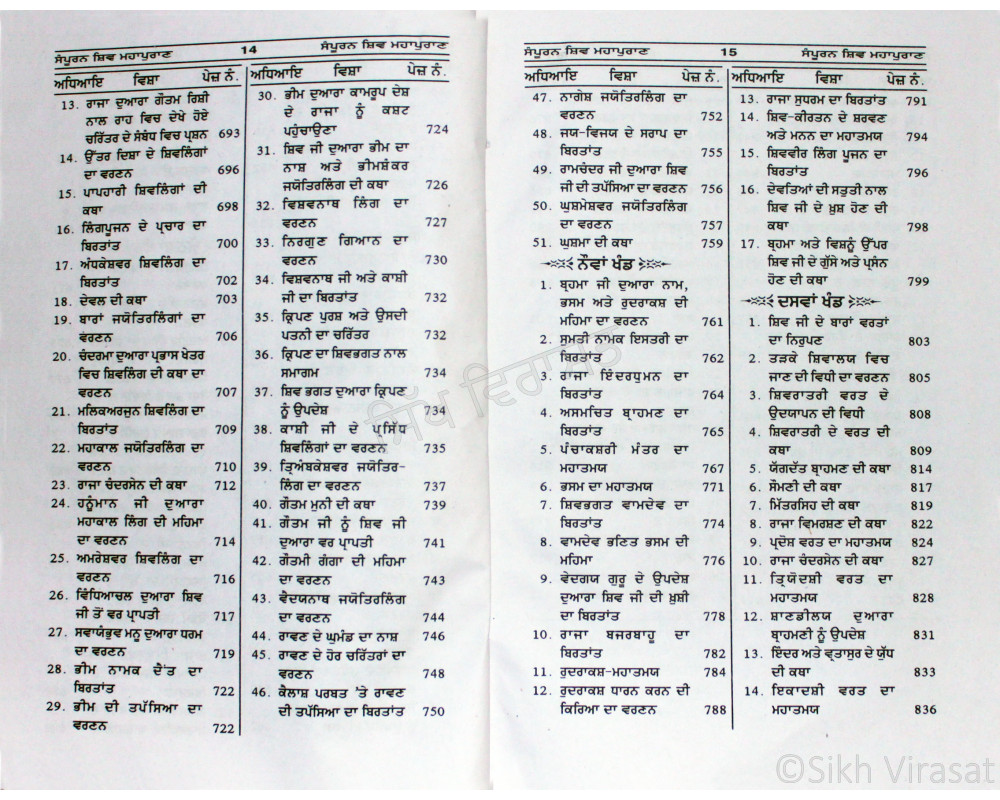 ਸੰਪੂਰਨ ਸ਼ਿਵ ਮਹਾਪੁਰਾਣ 14 ਸੰਪੂਰਨ ਸ਼ਿਵ ਮਹਾਪੁਰਾਣ
ਅਧਿਆਇ ਵਿਸ਼ਾ ਪੇਜ਼ ਨੰ.
13. ਰਾਜਾ ਦੁਆਰਾ ਗੌਤਮ ਰਿਸ਼ੀ
ਨਾਲ ਰਾਹ ਵਿਚ ਦੇਖੇ ਹੋਏ
ਚਰਿੱਤਰ ਦੇ ਸੰਬੰਧ ਵਿਚ ਪ੍ਰਸ਼ਨ 693
14. ਉੱਤਰ ਦਿਸ਼ਾ ਦੇ ਸ਼ਿਵਲਿੰਗਾਂ
ਦਾ ਵਰਣਨ 696
15. ਪਾਪਹਾਰੀ ਸ਼ਿਵਲਿੰਗਾਂ ਦੀ
ਕਥਾ 698
16. ਲਿੰਗਪੂਜਨ ਦੇ ਪ੍ਰਚਾਰ ਦਾ
ਬਿਰਤਾਂਤ 700
17. ਅੰਧਕੇਸ਼ਵਰ ਸ਼ਿਵਲਿੰਗ ਦਾ
ਬਿਰਤਾਂਤ 702
18. ਦੇਵਲ ਦੀ ਕਥਾ 703
19. ਬਾਰਾਂ ਜਯੋਤਿਰਲਿੰਗਾਂ ਦਾ
ਵਰਣਨ 706
20. ਚੰਦਰਮਾ ਦੁਆਰਾ ਪ੍ਰਭਾਸ ਖੇਤਰ
ਵਿਚ ਸ਼ਿਵਲਿੰਗ ਦੀ ਕਥਾ ਦਾ
ਵਰਣਨ 707
21. ਮਲਿਕਅਰਜੁਨ ਸ਼ਿਵਲਿੰਗ ਦਾ
ਬਿਰਤਾਂਤ 709
22. ਮਹਾਕਾਲ ਜਯੋਤਿਰਲਿੰਗ ਦਾ
ਵਰਣਨ 710
23. ਰਾਜਾ ਚੰਦਰਸੇਨ ਦੀ ਕਥਾ 712
24. ਹਨੂੰਮਾਨ ਜੀ ਦੁਆਰਾ
ਮਹਾਕਾਲ ਲਿੰਗ ਦੀ ਮਹਿਮਾ
ਦਾ ਵਰਣਨ 714
25. ਅਮਰੇਸ਼ਵਰ ਸ਼ਿਵਲਿੰਗ ਦਾ
ਵਰਣਨ 716
26. ਵਿੰਧਿਆਚਲ ਦੁਆਰਾ ਸ਼ਿਵ
ਜੀ ਤੋਂ ਵਰ ਪ੍ਰਾਪਤੀ 717
27. ਸਵਾਯੰਭੁਵ ਮਨੂ ਦੁਆਰਾ ਧਰਮ
ਦਾ ਵਰਣਨ 719
28. ਭੀਮ ਨਾਮਕ ਦੈਂਤ ਦਾ
ਬਿਰਤਾਂਤ 722
29. ਭੀਮ ਦੀ ਤਪੱਸਿਆ ਦਾ
ਵਰਣਨ 722
ਅਧਿਆਇ ਵਿਸ਼ਾ ਪੇਜ਼ ਨੰ.
30. ਭੀਮ ਦੁਆਰਾ ਕਾਮਰੂਪ ਦੇਸ਼
ਦੇ ਰਾਜਾ ਨੂੰ ਕਸ਼ਟ
ਪਹੁੰਚਾਉਣਾ 724
31. ਸ਼ਿਵ ਜੀ ਦੁਆਰਾ ਭੀਮ ਦਾ
ਨਾਸ਼ ਅਤੇ ਭੀਮਸ਼ੰਕਰ
ਜਯੋਤਿਰਲਿੰਗ ਦੀ ਕਥਾ 726
32. ਵਿਸ਼ਵਨਾਥ ਲਿੰਗ ਦਾ
ਵਰਣਨ 727
33. ਨਿਰਗੁਣ ਗਿਆਨ ਦਾ
ਵਰਣਨ 730
34. ਵਿਸ਼ਵਨਾਥ ਜੀ ਅਤੇ ਕਾਸ਼ੀ
ਜੀ ਦਾ ਬਿਰਤਾਂਤ 732
35. ਕ੍ਰਿਪਣ ਪੁਰਸ਼ ਅਤੇ ਉਸਦੀ
ਪਤਨੀ ਦਾ ਚਰਿੱਤਰ 732
36. ਕ੍ਰਿਪਣ ਦਾ ਸ਼ਿਵਭਗਤ ਨਾਲ
ਸਮਾਗਮ 734
37. ਸ਼ਿਵ ਭਗਤ ਦੁਆਰਾ ਕ੍ਰਿਪਣ
ਨੂੰ ਉਪਦੇਸ਼ 734
38. ਕਾਸ਼ੀ ਜੀ ਦੇ ਪ੍ਰਸਿੱਧ
ਸ਼ਿਵਲਿੰਗਾਂ ਦਾ ਵਰਣਨ 735
39. ਤ੍ਰਿਅੰਬਕੇਸ਼ਵਰ ਜਯੋਤਿਰ-
ਲਿੰਗ ਦਾ ਵਰਣਨ 737
40. ਗੌਤਮ ਮੁਨੀ ਦੀ ਕਥਾ 739
41. ਗੌਤਮ ਜੀ ਨੂੰ ਸ਼ਿਵ ਜੀ
ਦੁਆਰਾ ਵਰ ਪ੍ਰਾਪਤੀ 741
42. ਗੌਤਮੀ ਗੰਗਾ ਦੀ ਮਹਿਮਾ
ਦਾ ਵਰਣਨ 743
43. ਵੈਦਯਨਾਥ ਜਯੋਤਿਰਲਿੰਗ
ਦਾ ਵਰਣਨ 744
44. ਰਾਵਣ ਦੇ ਘੁਮੰਡ ਦਾ ਨਾਸ਼ 746
45. ਰਾਵਣ ਦੇ ਹੋਰ ਚਰਿੱਤਰਾਂ ਦਾ
ਵਰਣਨ 748
46. ਕੈਲਾਸ਼ ਪਰਬਤ 'ਤੇ ਰਾਵਣ
ਦੀ ਤਪੱਸਿਆ ਦਾ ਬਿਰਤਾਂਤ 750
ਸੰਪੂਰਨ ਸ਼ਿਵ ਮਹਾਪੁਰਾਣ 15 ਸੰਪੂਰਨ ਸ਼ਿਵ ਮਹਾਪੁਰਾਣ
ਅਧਿਆਇ ਵਿਸ਼ਾ ਪੇਜ਼ ਨੰ.
47. ਨਾਗੇਸ਼ ਜਯੋਤਿਰਲਿੰਗ ਦਾ
ਵਰਣਨ 752
48. ਜਯ-ਵਿਜਯ ਦੇ ਸਰਾਪ ਦਾ
ਬਿਰਤਾਂਤ 755
49. ਰਾਮਚੰਦਰ ਜੀ ਦੁਆਰਾ ਸ਼ਿਵ
ਜੀ ਦੀ ਤਪੱਸਿਆ ਦਾ ਵਰਣਨ 756
50. ਘੁਸ਼ਮੇਸ਼ਵਰ ਜਯੋਤਿਰਲਿੰਗ
ਦਾ ਵਰਣਨ 757
51. ਘੁਸ਼ਮਾ ਦੀ ਕਥਾ 759
ਨੌਵਾਂ ਖੰਡ
1. ਬ੍ਰਹਮਾ ਜੀ ਦੁਆਰਾ ਨਾਮ,
ਭਸਮ ਅਤੇ ਰੁਦਰਾਕਸ਼ ਦੀ
ਮਹਿਮਾ ਦਾ ਵਰਣਨ 761
2. ਸੁਮਤੀ ਨਾਮਕ ਇਸਤਰੀ ਦਾ
ਬਿਰਤਾਂਤ 762
3. ਰਾਜਾ ਇੰਦਰਧੁਮਨ ਦਾ
ਬਿਰਤਾਂਤ 764
4. ਅਸਮਚਿਤ ਬ੍ਰਾਹਮਣ ਦਾ
ਬਿਰਤਾਂਤ 765
5. ਪੰਚਾਕਸ਼ਰੀ ਮੰਤਰ ਦਾ
ਮਹਾਤਮਯ 767
6. ਭਸਮ ਦਾ ਮਹਾਤਮਯ 771
7. ਸ਼ਿਵਭਗਤ ਵਾਮਦੇਵ ਦਾ
ਬਿਰਤਾਂਤ 774
8. ਵਾਮਦੇਵ ਭਣਿਤ ਭਸਮ ਦੀ
ਮਹਿਮਾ 776
9. ਵੇਦਗਯ ਗੁਰੂ ਦੇ ਉਪਦੇਸ਼
ਦੁਆਰਾ ਸ਼ਿਵ ਜੀ ਦੀ ਖੁਸ਼ੀ
ਦਾ ਬਿਰਤਾਂਤ 778
10. ਰਾਜਾ ਬਜਰਬਾਹੂ ਦਾ
ਬਿਰਤਾਂਤ 782
11. ਰੁਦਰਾਕਸ਼-ਮਹਾਤਮਯ 784
12. ਰੁਦਰਾਕਸ਼ ਧਾਰਨ ਕਰਨ ਦੀ
ਕਿਰਿਆ ਦਾ ਵਰਣਨ 788
ਅਧਿਆਇ ਵਿਸ਼ਾ ਪੇਜ਼ ਨੰ.
13. ਰਾਜਾ ਸੁਧਰਮ ਦਾ ਬਿਰਤਾਂਤ 791
14. ਸ਼ਿਵ-ਕੀਰਤਨ ਦੇ ਸ਼ਰਵਣ
ਅਤੇ ਮਨਨ ਦਾ ਮਹਾਤਮਯ 794
15. ਸ਼ਿਵਵੀਰ ਲਿੰਗ ਪੂਜਨ ਦਾ
ਬਿਰਤਾਂਤ 796
16. ਦੇਵਤਿਆਂ ਦੀ ਸਤੁਤੀ ਨਾਲ
ਸ਼ਿਵ ਜੀ ਦੇ ਖੁਸ਼ ਹੋਣ ਦੀ
ਕਥਾ 798
17. ਬ੍ਰਹਮਾ ਅਤੇ ਵਿਸ਼ਨੂੰ ਉੱਪਰ
ਸ਼ਿਵ ਜੀ ਦੇ ਗੁੱਸੇ ਅਤੇ ਪ੍ਰਸੰਨ
ਹੋਣ ਦੀ ਕਥਾ 799
ਦਸਵਾਂ ਖੰਡ
1. ਸ਼ਿਵ ਜੀ ਦੇ ਬਾਰਾਂ ਵਰਤਾਂ
ਦਾ ਨਿਰੂਪਣ 803
2. ਤੜਕੇ ਸ਼ਿਵਾਲਯ ਵਿਚ
ਜਾਣ ਦੀ ਵਿਧੀ ਦਾ ਵਰਣਨ 805
3. ਸ਼ਿਵਰਾਤਰੀ ਵਰਤ ਦੇ
ਉਦਯਾਪਣ ਦੀ ਵਿਧੀ 808
4. ਸ਼ਿਵਰਾਤਰੀ ਦੇ ਵਰਤ ਦੀ
ਕਥਾ 809
5. ਯੱਗਦੱਤ ਬ੍ਰਾਹਮਣ ਦੀ ਕਥਾ 814
6. ਸੌਮਣੀ ਦੀ ਕਥਾ 817
7. ਮਿੱਤਰਸਿਹ ਦੀ ਕਥਾ 819
8. ਰਾਜਾ ਵਿਮਰਸ਼ਣ ਦੀ ਕਥਾ 822
9. ਪ੍ਰਦੋਸ਼ ਵਰਤ ਦਾ ਮਹਾਤਮਯ 824
10. ਰਾਜਾ ਚੰਦਰਸੇਨ ਦੀ ਕਥਾ 827
11. ਤ੍ਰਿਯੋਦਸ਼ੀ ਵਰਤ ਦਾ
ਮਹਾਤਮਯ 828
12. ਸ਼ਾਣਡੀਲਯ ਦੁਆਰਾ
ਬ੍ਰਾਹਮਣੀ ਨੂੰ ਉਪਦੇਸ਼ 831
13. ਇੰਦਰ ਅਤੇ ਵ੍ਰਤਾਸੁਰ ਦੇ ਯੁੱਧ
ਦੀ ਕਥਾ 833
14. ਇਕਾਦਸ਼ੀ ਵਰਤ ਦਾ
ਮਹਾਤਮਯ 836
ਸਿੱਖ ਵਿਰਾਸਤ
©Sikh Virasat